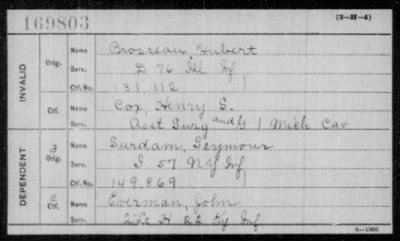 169803
(3-H-4)
INVALID
Orig. Name Brosreau, Hubert
Serv. D 76 Ill Inf
Ctf. No. 131,112
Ctf. Name Cox, Henry G.
Serv. Asst Surg and G 1 Mich Cav
DEPENDENT
2 Orig. Name Surdam, Seymour
Serv. I 57 NY Inf
Ctf. No. 149,869
2 Ctf. Name Everman, John
Serv. 2 Lt H 22 Ky Inf